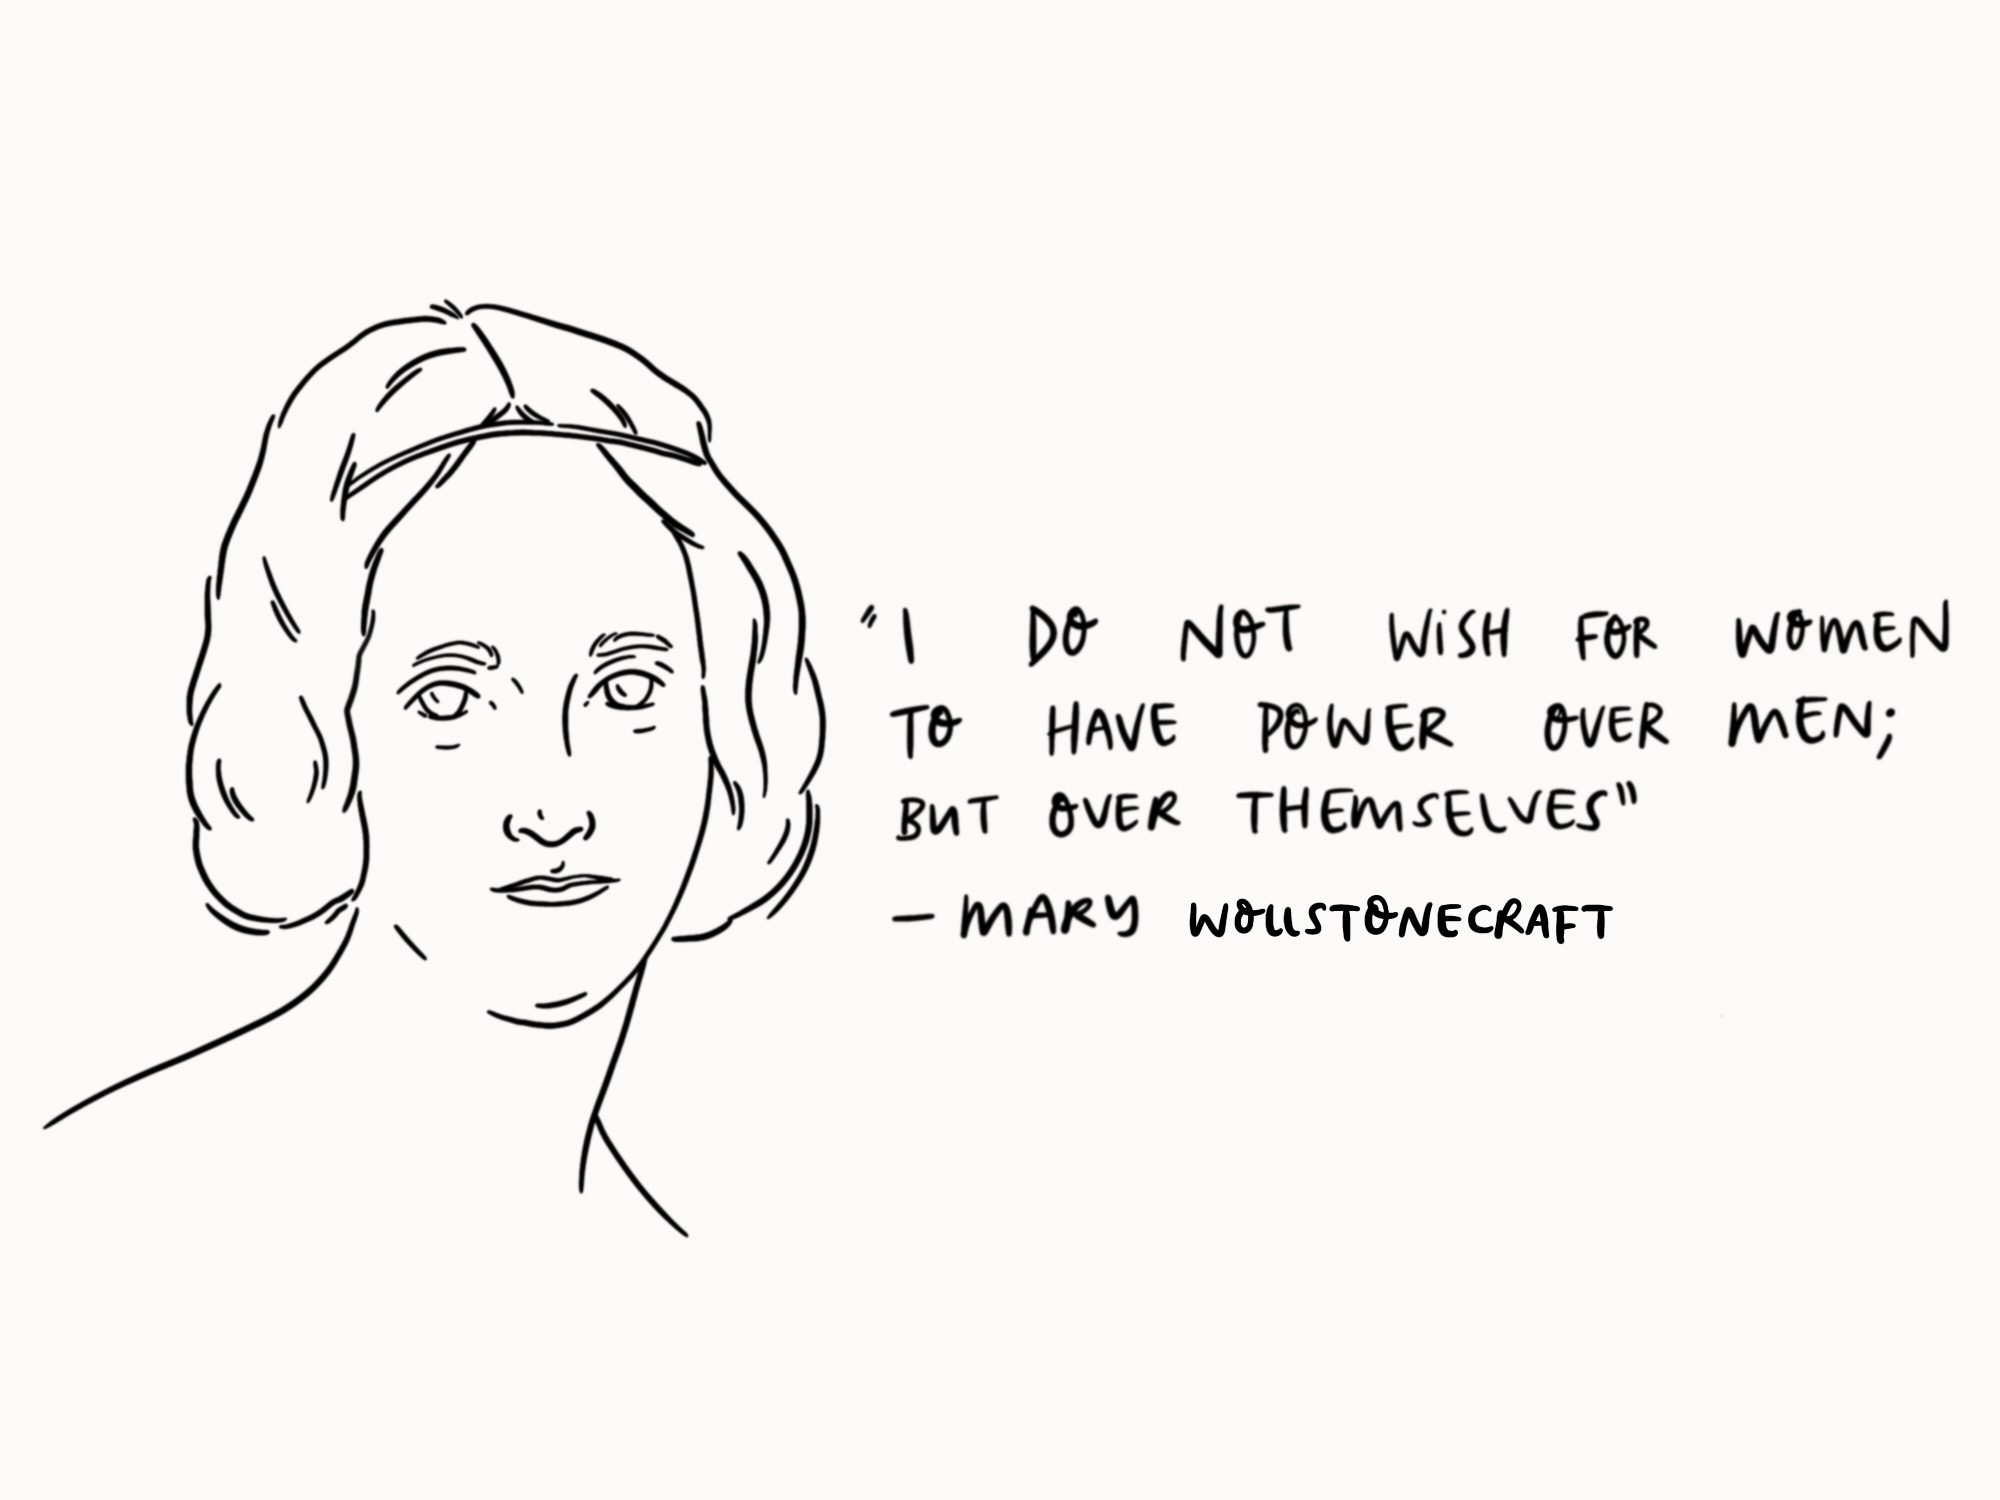 "I DO NOT WiSH FOR WOMEN
TO HAVE POWER OVER MEN;
BUT OVER THEMSELVES"
– MARY WOLLSTONECRAFT